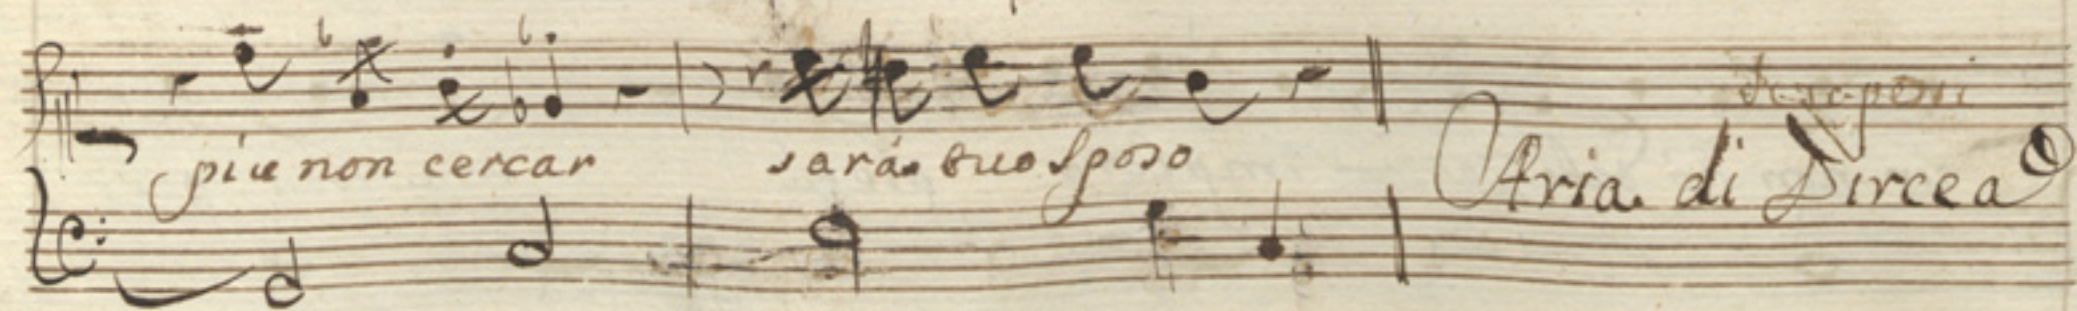 piu non cercar sará tuo sposo
Aria. di Dircea